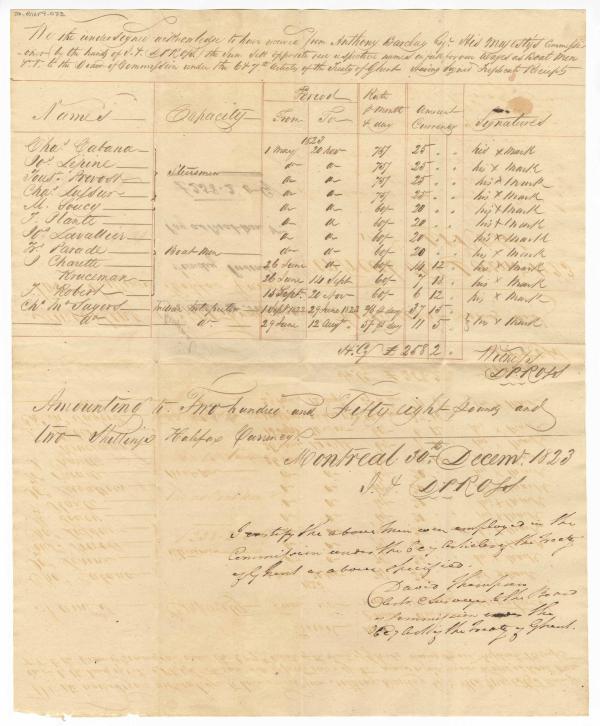 We the undersigned acknowledge to have received from Anthony Barclay Esqr. His Majesty's Commissi-
oner by the hands of J. & DPROSS the Sum Set opposite our respective names in full for our Wages as Boat Men
&c. &c. to the Commission under the 6 & 7th Articles of the Treaty of Ghent Having Signed Triplicate Receipts
Names Capacity Period From To Rate P Month & day Amount Currency Signatures
1823
Chas. Cabana 1 May 20 Nov 75/ 25 . . his x Mark
Jos. Lepine do do 75/ 25 . . his x Mark
Tousst. Provost Steersmen do do 75/ 25 . . his x Mark
Chas. do do 75/ 25 . . his x Mark
M. Soucy do do 60/ 20 . . his x Mark
J. Plante do do 60/ 20 . . his x Mark
Jos. Lavallier do do 60/ 20 . . his x Mark
Parade Boat Men do do 60/ 20 . . his x Mark
J Charette 26 June do 60/ 14 12 . his x Mark
Kruceman 26 June 14 Sept 60/ 7 18 . his x Mark
J. Robert 15 Sept. 20 Nov 60/ 6 12 . his x Mark
Chs. Indian Interpreter 1 Sept 1822 29 June 1823 37 15 . his x Mark
do do 29 June 12 Augt. P day 11 5 .
H. Cy £ 258 2 .
Witness
DPROSS
Amounting to Two hundred and Fifty eight pounds and
two Shillings Halifax Currency.
Montreal 30th Decemr. 1823
J. & DPROSS
I certify the above men were employed in the
Commission under the 6 & 7 Articles of the Treaty
of Ghent as above specified.
David Thompson
Astr. & Surveyor to the Board
of Commission under the
6 & 7 Articles of the Treaty of Ghent.